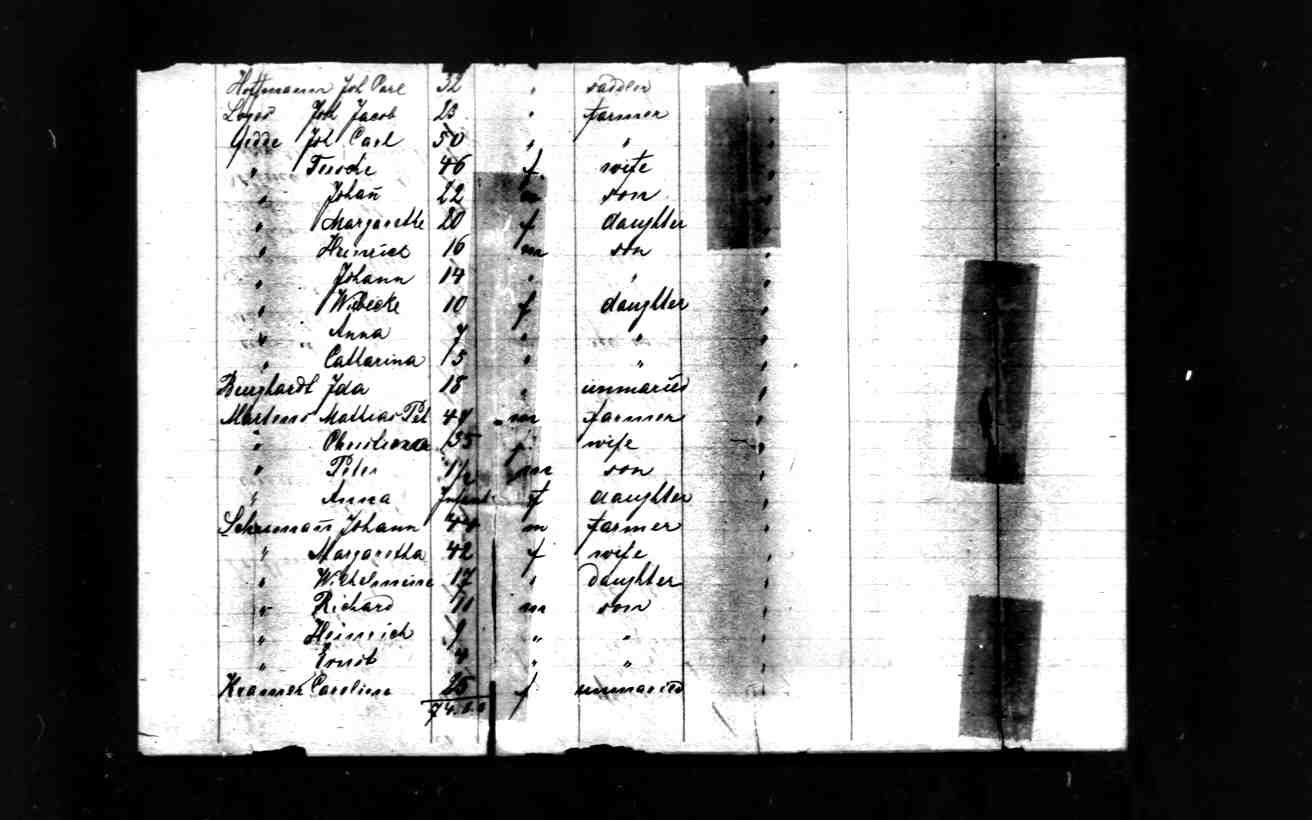 Hoffmann Joh Carl 32 " saddler "
Joh Jacob 23 " farmer "
Gedde Joh Carl 50 " " "
" 46 f wife "
" Johañ 22 m son "
" Margarethe 20 f daughter "
" Heinrich 16 m son "
" Johann 14 " " "
" Wiebecke 10 f daughter "
" Anna 7 " " "
" Cattarina 5 " " "
Burghardt Ida 18 " unmaried "
Martens Mathias Pet 49 m farmer "
" 35 f wife "
" Peter 1 1/2 m son "
" Anna Infant f daughter "
Johann 44 m farmer "
" Margaretha 42 f wife "
" Wilhelmine 17 " daughter "
" Richard 11 m son "
" Heinrich 9 " " "
" Ernst 4 " " "
Kramer Caroline 25 f unmaried